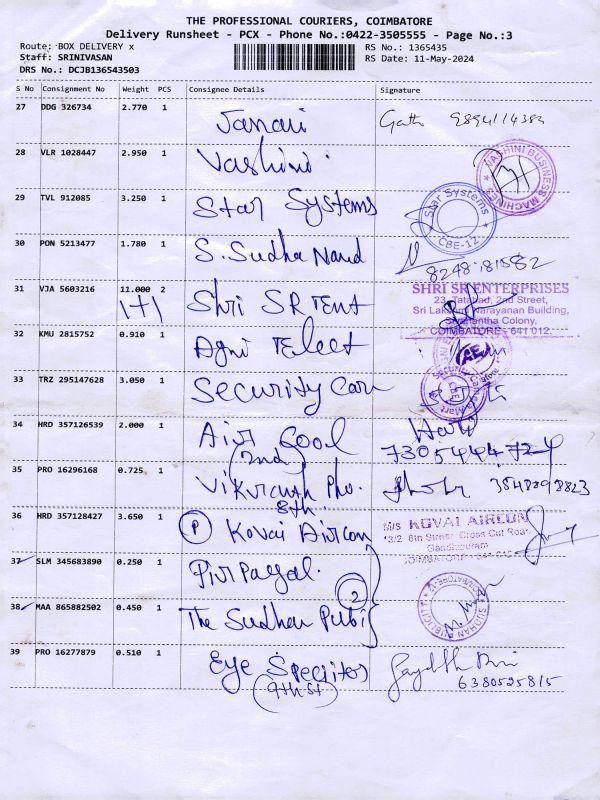 THE PROFESSIONAL COURIERS, COIMBATORE
Delivery Runsheet - PCX - Phone No.:0422-3505555 - Page No.:3
Route: BOX DELIVERY x
RS No.: 1365435
Staff: SRINIVASAN
RS Date: 11-May-2024
DRS No.: DCJB136543503
S No Consignment No Weight PCS Consignee Details Signature
27 DDG 326734 2.770 1
Janani
28 VLR 1028447 2.950 1
Vashini
VASHINI BUSINESS MACHINES
29 TVL 912085 3.250 1
Star Systems
Star Systems
CBE-12
30 PON 5213477 1.780 1
S. Sudha Nand
31 VJA 5603216 11.000 2
1+1 Shri SR Tent
SHRI SR ENTERPRISES
23, Tatabad, 2nd Street,
Sri Lakshmi Narayanan Building,
Colony,
COIMBATORE - 641 012.
32 KMU 2815752 0.910 1
Agni Telect
33 TRZ 295147628 3.050 1
Security Can
34 HRD 357126539 2.000 1
Air Cool
(2nd)
Hari
35 PRO 16296168 0.725 1
Vikranth Pho.
8th.
36 HRD 357128427 3.650 1
P Kovai Aircon
M/s KOVAI AIRCON
6th Street Cross Cut Road
Gandhipuram
COIMBATORE - 641 012
37 SLM 345683890 0.250 1
38 MAA 865882502 0.450 1
2
The Sudhan Publi
39 PRO 16277879 0.510 1
Eye
(9th St)
6380525815